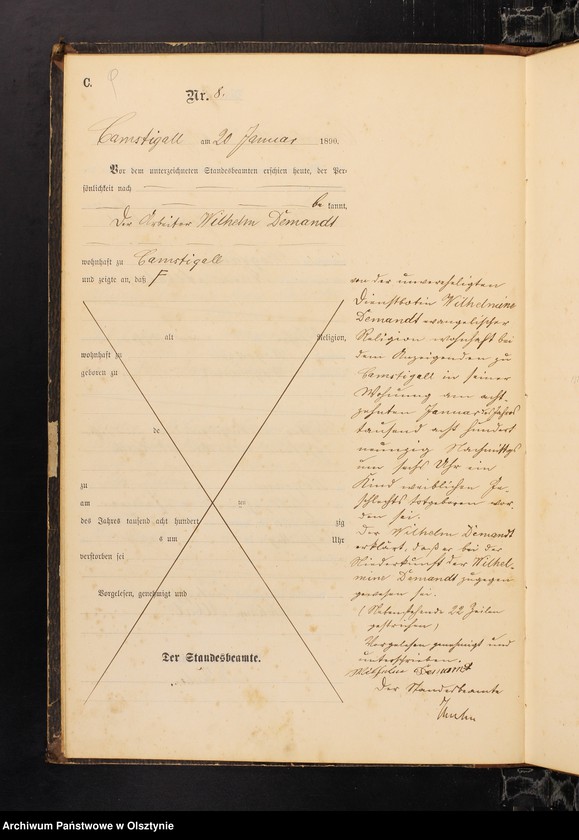 C.
Nr. 8.
Camstigall am 20 Januar 1890.
Vor dem unterzeichneten Standesbeamten erschien heute, der Per-
sönlichkeit nach
be kannt,
Der Arbeiter Wilhelm Demandt
wohnhaft zu Camstigall
und zeigte an, daß
alt Religion,
wohnhaft zu
geboren zu
de
zu
am ten
des Jahres tausend acht hundert zig
s um Uhr
verstorben sei
Vorgelesen, genehmigt und
Der Standesbeamte.
von der unvereheligten
Dienstbotin Wilhelmine
Demandt evangelischer
Religion wohnhaft bei
dem Anzeigenden zu
Camstigall in seiner
Wohnung am acht-
zehnten Januar des Jahres
tausend acht hundert
neunzig Nachmittags
um sechs Uhr ein
Kind weiblichen Ge-
schlechts todtgeboren wor-
den sei.
Der Wilhelm Demandt
erklärt, daß er bei der
Niederkunft der Wilhel-
mine Demandt zugegen
gewesen sei.
(Nebenstehende 22 Zeilen
gestrichen)
Vorgelesen genehmigt und
unterschrieben.
Wilhelm Demandt
Der Standesbeamte
Archiwum Państwowe w Olsztynie